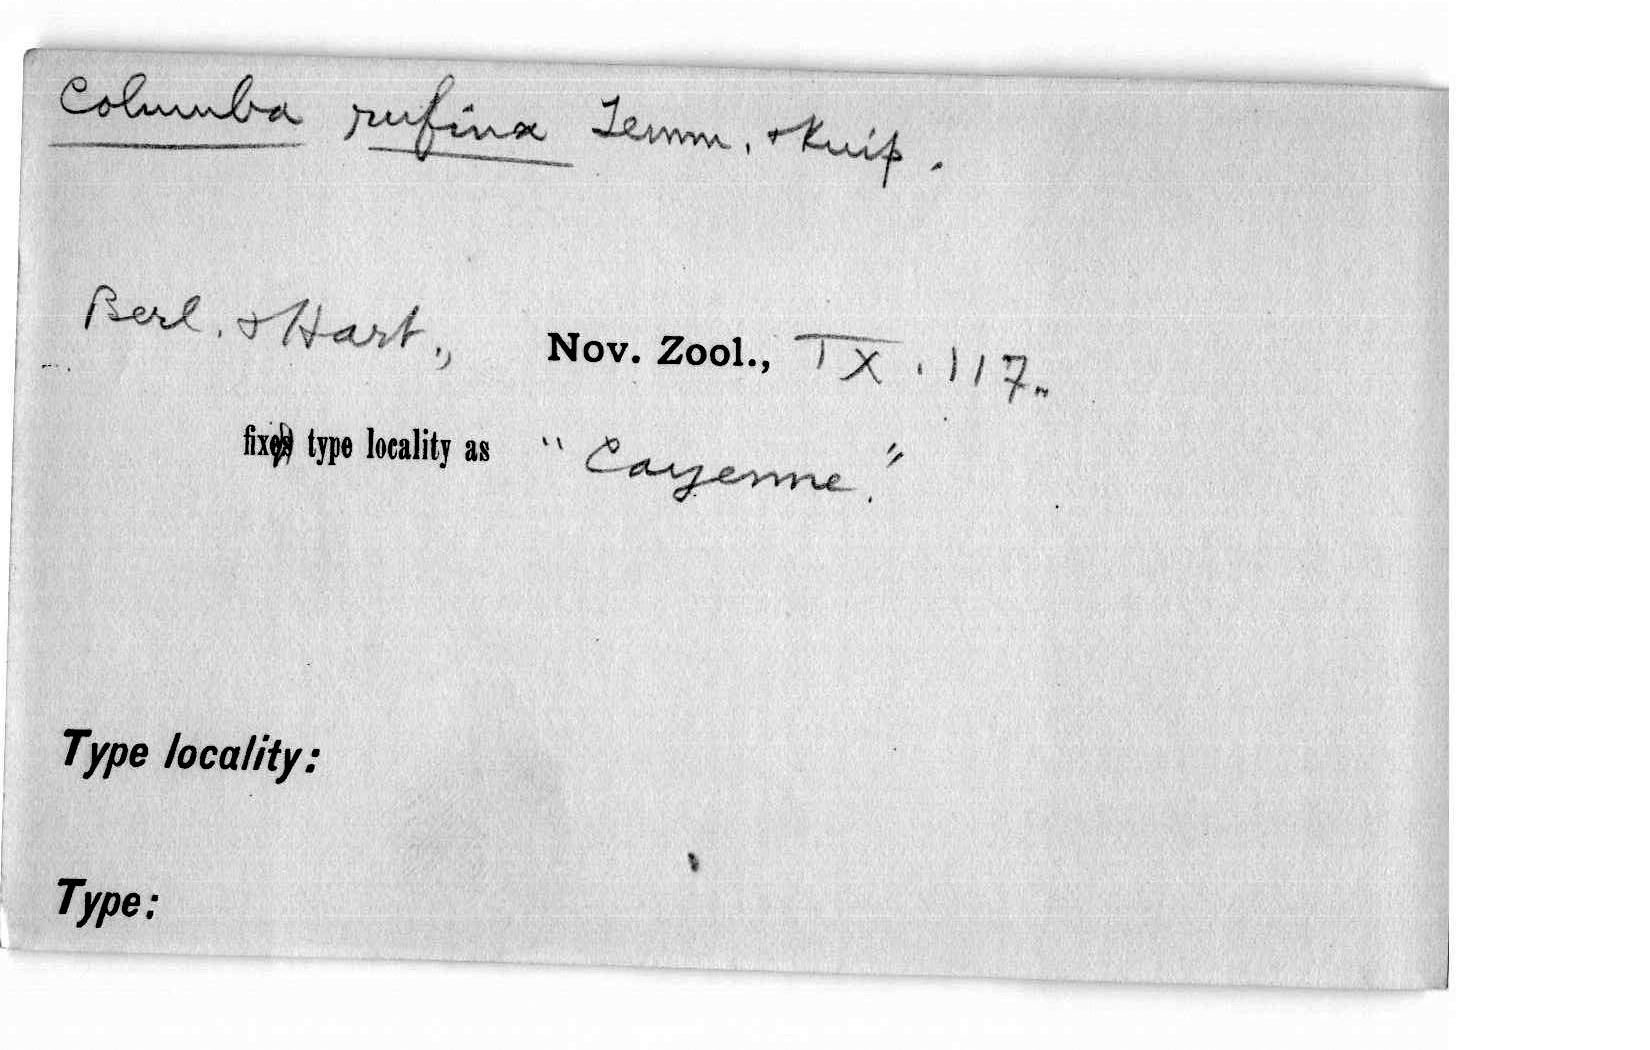 Columba rufina Temm. & Knip.
Berl. & Hart., Nov. Zool., IX. 117.
fixed type locality as "Cayenne."
Type locality:
Type: